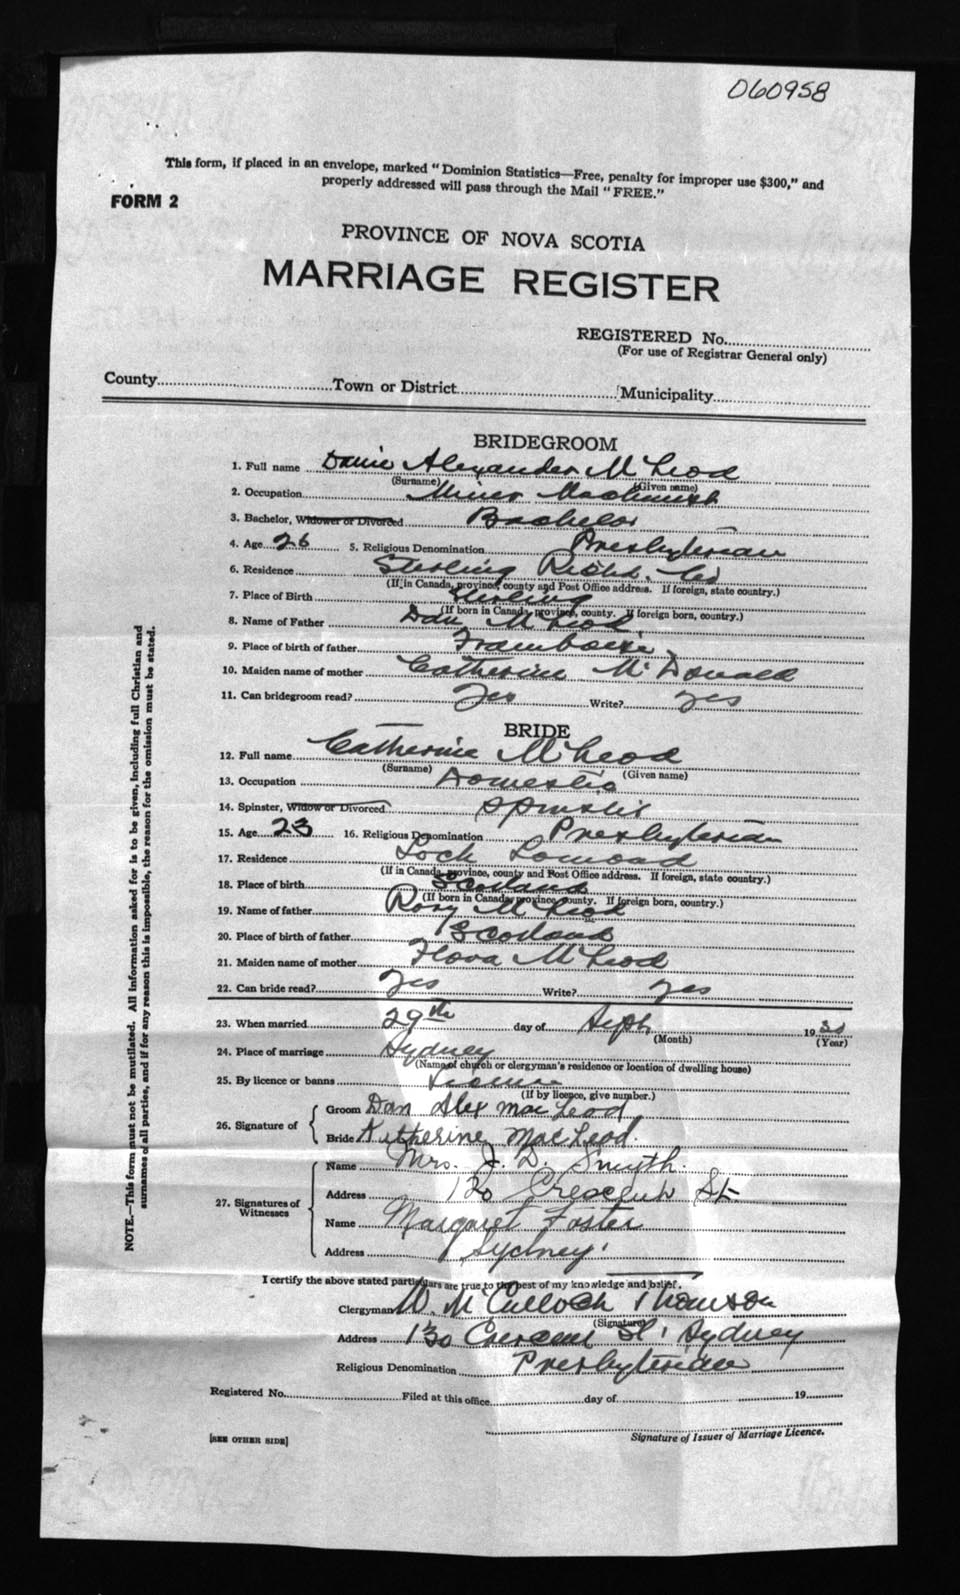 060958
This form, if placed in an envelope, marked "Dominion Statistics—Free, penalty for improper use $300," and
properly addressed will pass through the Mail "FREE."
FORM 2
PROVINCE OF NOVA SCOTIA
MARRIAGE REGISTER
REGISTERED No.
(For use of Registrar General only)
County Town or District Municipality
BRIDEGROOM
1. Full name Alexander McLeod
(Surname) (Given name)
2. Occupation Miner Machinist
3. Bachelor, Widower or Divorced Bachelor
4. Age 26 5. Religious Denomination Presbyterian
6. Residence Sterling Richd. Co
(If in Canada, province, county and Post Office address. If foreign, state country.)
7. Place of Birth Sterling
(If born in Canada, province, county. If foreign born, country.)
8. Name of Father Dan McLeod
9. Place of birth of father Framboise
10. Maiden name of mother Catherine McDonald
11. Can bridegroom read? Yes Write? yes
BRIDE
12. Full name Catherine McLeod
(Surname) (Given name)
13. Occupation Domestic
14. Spinster, Widow or Divorced Spinster
15. Age 23 16. Religious Denomination Presbyterian
17. Residence Loch Lomond
(If in Canada, province, county and Post Office address. If foreign, state country.)
18. Place of birth Scotland
(If born in Canada, province, county. If foreign born, country.)
19. Name of father Rory McLeod
20. Place of birth of father Scotland
21. Maiden name of mother Flora McLeod
22. Can bride read? Yes Write? yes
23. When married 29th day of Sept 1930
(Month) (Year)
24. Place of marriage Sydney
(Name of church or clergyman's residence or location of dwelling house)
25. By licence or banns License
(If by licence, give number.)
26. Signature of Groom Dan Alex MacLeod
Bride Katherine MacLeod.
27. Signatures of Witnesses Name Mrs. J. D. Smyth.
Address 120 Crescent St
Name Margaret Foster
Address Sydney.
I certify the above stated particulars are true to the best of my knowledge and belief.
Clergyman W. McCulloch Thomson
(Signature)
Address 130 Crescent St. Sydney
Religious Denomination Presbyterian
Registered No. Filed at this office day of 19
[SEE OTHER SIDE]
Signature of Issuer of Marriage Licence.
NOTE.—This form must not be mutilated. All information asked for is to be given, including full Christian and
surnames of all parties, and if for any reason this is impossible, the reason for the omission must be stated.